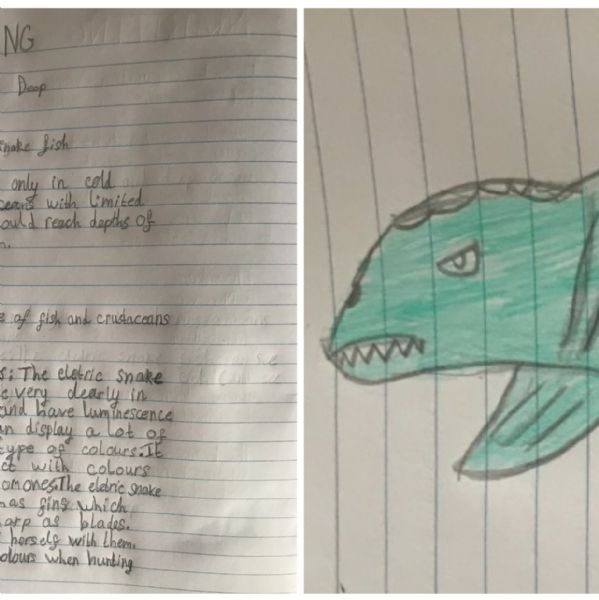 NG
Deep
snake fish
only in cold
oceans with limited
ould reach depths of
e of fish and crustaceans
s: The eletric snake
e very clearly in
and have luminescence
an display a lot of
type of colours. It
ct with colours
om ones. The eletric snake
has fins which
arp as blades.
herself with them.
olours when hunting